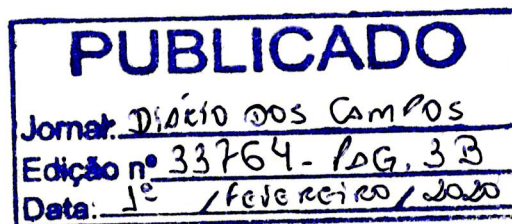 PUBLICADO
Jornal: DIÁRIO DOS CAMPOS
Edição nº 33764 - PÁG. 3B
Data: 1º / FEVEREIRO / 2020